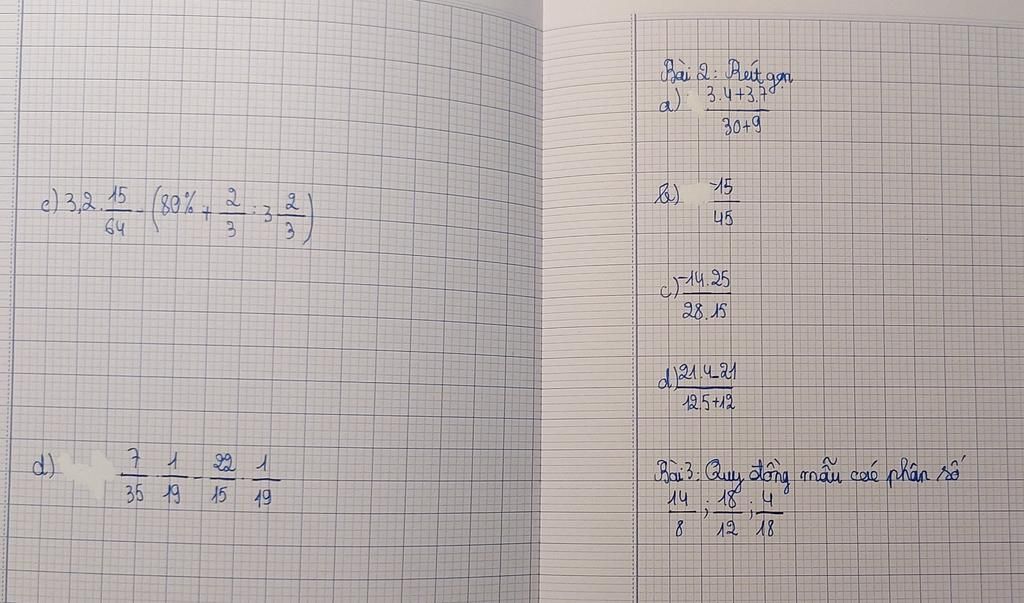 c) 3,2 . 15/64 - (80% + 2/3 : 3 2/3)
d) 7/35 . 1/19 - 22/15 . 1/19
Bài 2: Rút gọn
a) (3.4+3.7)/(30+9)
b) -15/45
c) (-14.25)/(28.15)
d) (21.4-21)/(12.5+12)
Bài 3: Quy đồng mẫu các phân số
14/8 ; 18/12 ; 4/18